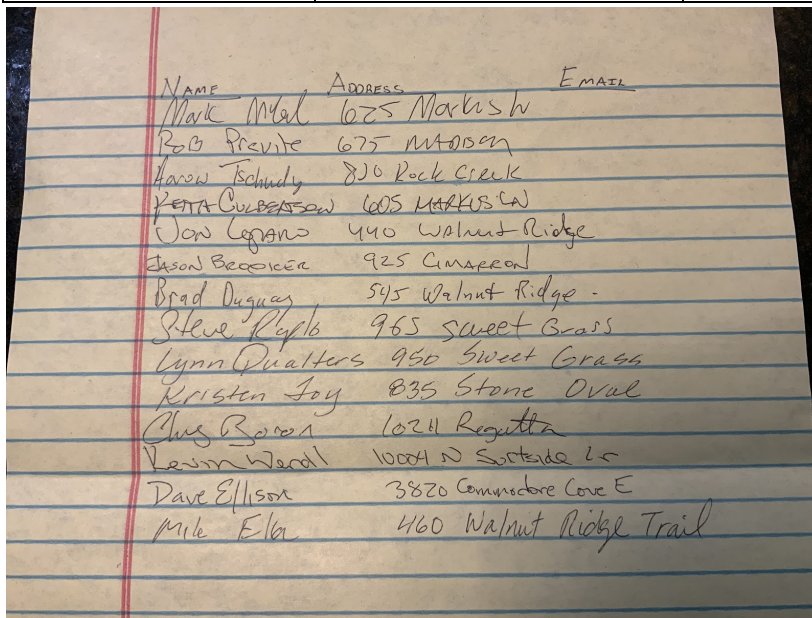 NAME ADDRESS EMAIL
Mark 625 Markus Ln
ROB Previte 675 MADISON
Aaron Tschudy 830 Rock Creek
KEITH CULBERTSON 605 MARKUS LN
JON LOPARO 440 Walnut Ridge
JASON BROOKER 925 CIMARRON
Brad Duguay 545 Walnut Ridge
Steve 965 Sweet Grass
Lynn Qualters 950 Sweet Grass
Kristen Joy 835 Stone Oval
Regatta
Kevin 10004 N Surfside Cir
Dave Ellison 3820 Commodore Cove E
Mike 460 Walnut Ridge Trail